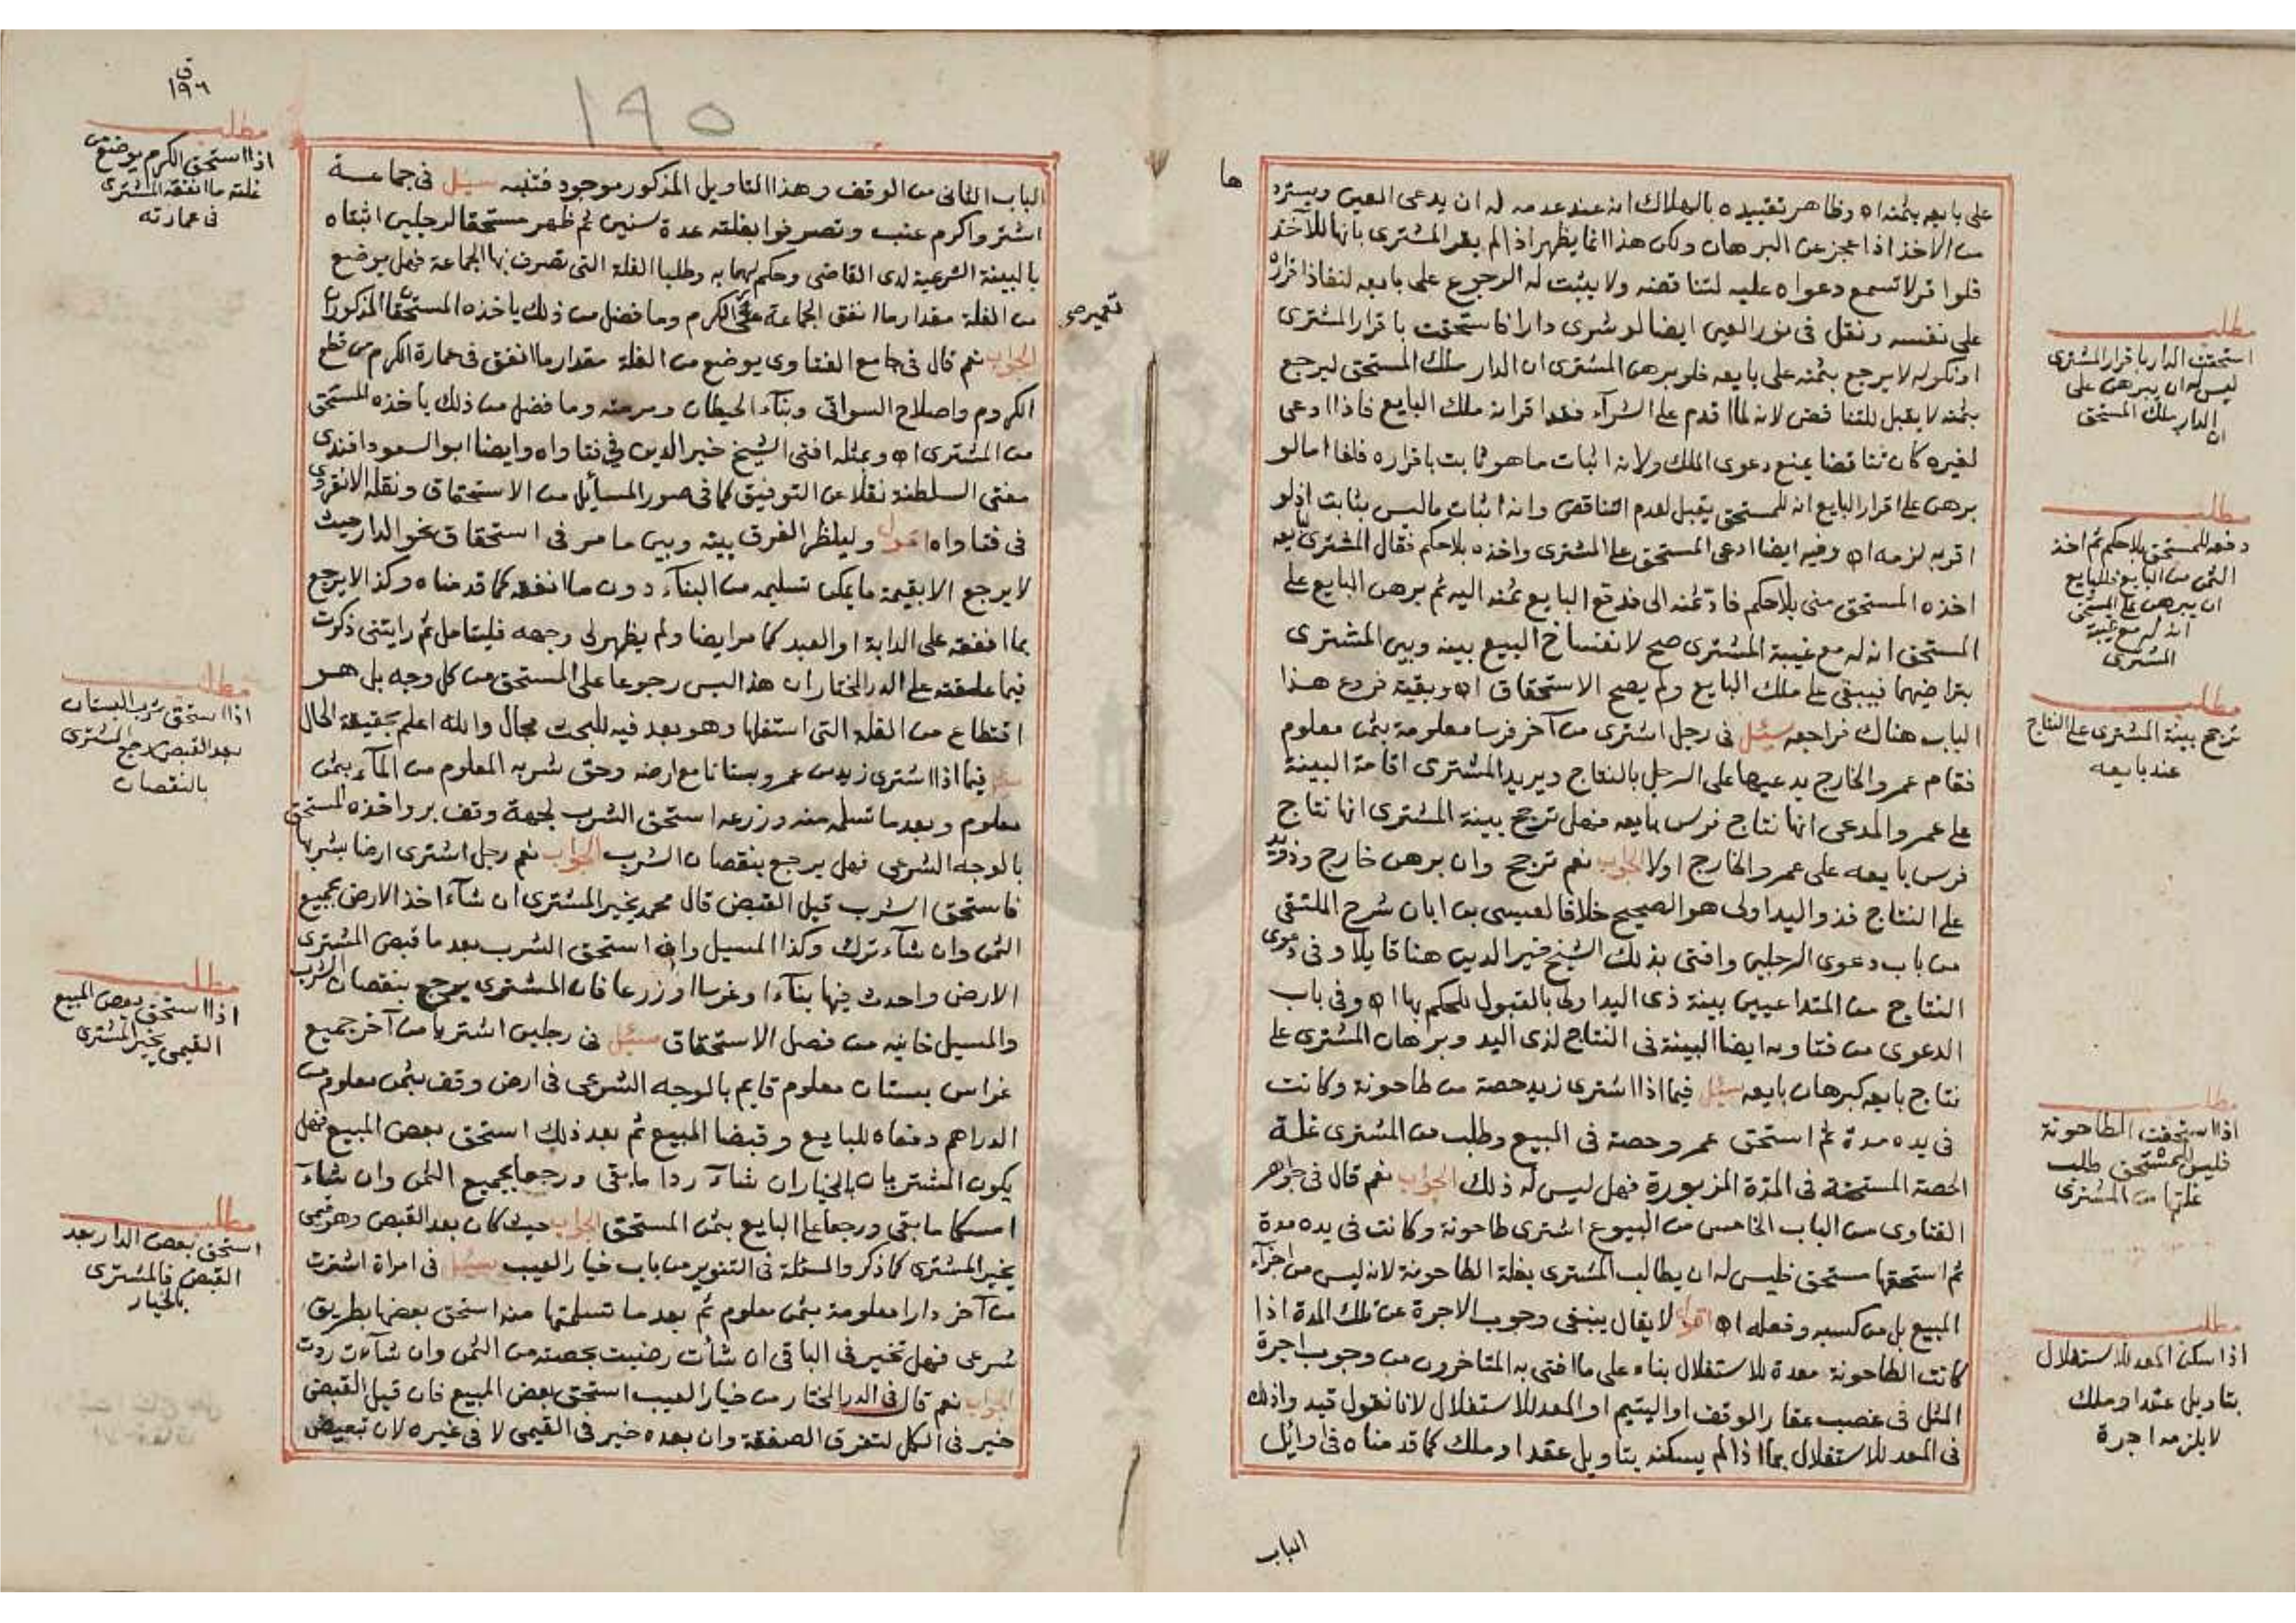 على بايعه بثمنه اه وظاهر تقييده بالهلاك انه عند عدمه له ان يدعى العين ويسترد
ها
من الاخذ اذا عجز عن البرهان ولكن هذا انما يظهر اذا لم يقر المشترى بانها للآخذ
فلو اقر لا تسمع دعواه عليه لتناقضه ولا يثبت له الرجوع على بايعه لنفاذ اقراره
على نفسه ونقل فى نور العين ايضا لو شرى دارا فاستحقت باقرار المشترى
او نكوله لا يرجع بثمنه على بايعه فلو برهن المشترى ان الدار ملك المستحق ليرجع
بثمنه لا يقبل للتناقض لانه لما اقدم على الشرآء فقد اقر انه ملك البايع فاذا ادعى
لغيره كان تناقضا يمنع دعوى الملك ولانه اثبات ما هو ثابت باقراره فلغا اما لو
برهن على اقرار البايع انه للمستحق يقبل لعدم التناقض وانه اثبات ما ليس بثابت اذ لو
اقر به لزمه اه وفيه ايضا ادعى المستحق على المشترى واخذه بلا حكم فقال المشترى لبايعه
اخذه المستحق منى بلا حكم فادّ ثمنه الى فدفع البايع ثمنه اليه ثم برهن البايع على
المستحق انه له مع غيبة المشترى صح لانفساخ البيع بينه وبين المشترى
بتراضيهما فيبقى على ملك البايع ولم يصح الاستحقاق اه وبقية فروع هذا
الباب هناك فراجعه سئل فى رجل اشترى من آخر فرسا معلومة بثمن معلوم
فقام عمرو الخارج يدعيها على الرجل بالنتاج ويريد المشترى اقامة البينة
على عمرو المدعى انها نتاج فرس بايعه فهل ترجح بينة المشترى انها نتاج
فرس بايعه على عمرو الخارج اولا الجواب نعم ترجح وان برهن خارج وذو يد
على النتاج فذو اليد اولى هو الصحيح خلافا لعيسى بن ابان شرح الملتقى
من باب دعوى الرجلين وافتى بذلك الشيخ خير الدين هنا قايلا وفى دعوى
النتاج من المتداعيين بينة ذى اليد اولى بالقبول للحكم بها اه وفى باب
الدعوى من فتاويه ايضا البينة فى النتاج لذى اليد وبرهان المشترى على
نتاج بايعه كبرهان بايعه سئل فيما اذا اشترى زيد حصة من طاحونة وكانت
فى يده مدة ثم استحق عمرو حصة فى المبيع وطلب من المشترى غلة
الحصة المستحقة فى المدة المزبورة فهل ليس له ذلك الجواب نعم قال فى جواهر
الفتاوى من الباب الخامس من البيوع اشترى طاحونة وكانت فى يده مدة
ثم استحقها مستحق فليس له ان يطالب المشترى بغلة الطاحونة لانه ليس من اجزآء
المبيع بل من كسبه وفعله اه اقول لا يقال ينبغى وجوب الاجرة عن تلك المدة اذا
كانت الطاحونة معدة للاستغلال بناء على ما افتى به المتاخرون من وجوب اجرة
المثل فى غصب عقار الوقف او اليتيم او المعد للاستغلال لانا نقول قيد واذلك
فى المعد للاستغلال بما اذا لم يسكنه بتاويل عقد او ملك كما قدمناه فى اوايل
الباب
مطلب
استحقت الدار باقرار المشترى
ليس له ان يبرهن على
ان الدار ملك المستحق
مطلب
دفعه للمستحق بلا حكم ثم اخذ
الثمن من البايع فللبايع
ان يبرهن على المستحق
انه له مع غيبة
المشترى
مطلب
ترجح بينة المشترى على النتاج
عند بايعه
مطلب
اذا استحقت الطاحونة
فليس للمستحق طلب
غلتها من المشترى
مطلب
اذا سكن المعد للاستغلال
بتاويل عقد او ملك
لا يلزمه اجرة
١٩٥
ق
١٩٦
الباب الثانى من الوقف وهذا التاويل المذكور موجود فتنبه سئل فى جماعة
اشتروا كرم عنب وتصرفوا بغلته عدة سنين ثم ظهر مستحقا لرجلين اثبتاه
بالبينة الشرعية لدى القاضى وحكم لهما به وطلبا الغلة التى تصرف بها الجماعة فهل يوضع
من الغلة مقدار ما انفق الجماعة على الكرم وما فضل من ذلك ياخذه المستحقان المذكوران
تعمير صح
الجواب نعم قال فى جامع الفتاوى يوضع من الغلة مقدار ما انفق فى عمارة الكرم من قطع
الكروم واصلاح السواقى وبنآء الحيطان ومرمته وما فضل من ذلك ياخذه المستحق
من المشترى اه وبمثله افتى الشيخ خير الدين فى فتاواه وايضا ابو السعود افندى
مفتى السلطنة نقلا عن التوفيق كما فى صور المسائل من الاستحقاق ونقله الانقروى
فى فتاواه اقول ولينظر الفرق بينه وبين ما مر فى استحقاق نحو الدار حيث
لا يرجع الا بقيمة ما يمكن تسليمه من البنآء دون ما انفقه كما قدمناه وكذا لا يرجع
بما انفقه على الدابة او العبد كما مر ايضا ولم يظهر لى وجهه فليتامل ثم رايتنى ذكرت
فيما علقته على الدر المختار ان هذا ليس رجوعا على المستحق من كل وجه بل هو
اقتطاع من الغلة التى استغلها وهو بعد فيه للبحث مجال والله اعلم بحقيقة الحال
سئل فيما اذا اشترى زيد من عمرو بستانا مع ارضه وحق شربه المعلوم من المآء بثمن
معلوم وبعد ما تسلمه منه وزرعه استحق الشرب لجهة وقف بر واخذه المستحق
بالوجه الشرعى فهل يرجع بنقصان الشرب الجواب نعم رجل اشترى ارضا بشربها
فاستحق الشرب قبل القبض قال محمد يخير المشترى ان شآء اخذ الارض بجميع
الثمن وان شآء ترك وكذا المسيل وان استحق الشرب بعد ما قبض المشترى
الارض واحدث فيها بنآءا او غرسا او زرعا فان المشترى يرجع بنقصان الشرب
والمسيل خانيه من فصل الاستحقاق سئل فى رجلين اشتريا من آخر جميع
غراس بستان معلوم قايم بالوجه الشرعى فى ارض وقف بثمن معلوم من
الدراهم دفعاه للبايع وقبضا المبيع ثم بعد ذلك استحق بعض المبيع فهل
يكون المشتريان بالخيار ان شآء ردا ما بقى ورجعا بجميع الثمن وان شآء
امسكا ما بقى ورجعا على البايع بثمن المستحق الجواب حيث كان بعد القبض وهو قيمى
يخير المشترى كما ذكر والمسئلة فى التنوير من باب خيار العيب سئل فى امراة اشترت
من آخر دارا معلومة بثمن معلوم ثم بعد ما تسلمتها منه استحق بعضها بطريق
شرعى فهل تخير فى الباقى ان شأت رضيت بحصته من الثمن وان شآءت ردت
الجواب نعم قال فى الدر المختار من خيار العيب استحق بعض المبيع فان قبل القبض
خير فى الكل لتفرق الصفقة وان بعده خير فى القيمى لا فى غيره لان تبعيض
مطلب
اذا استحق الكرم يوضع من
غلته ما انفقه المشترى
فى عمارته
مطلب
اذا استحق شرب البستان
بعد القبض يرجع المشترى
بالنقصان
مطلب
اذا استحق بعض المبيع
القيمى يخير المشترى
مطلب
استحق بعض الدار بعد
القبض فالمشترى
بالخيار